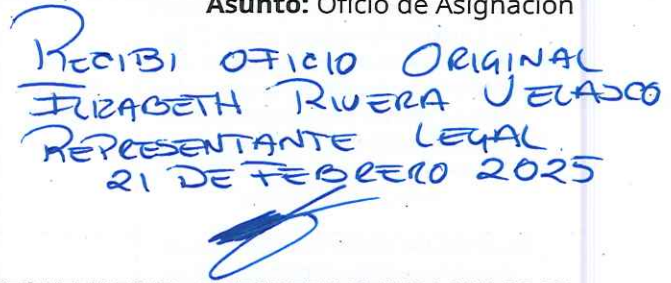 Asunto: Oficio de Asignación
RECIBI OFICIO ORIGINAL
ELIZABETH RIVERA VELASCO
REPRESENTANTE LEGAL.
21 DE FEBRERO 2025